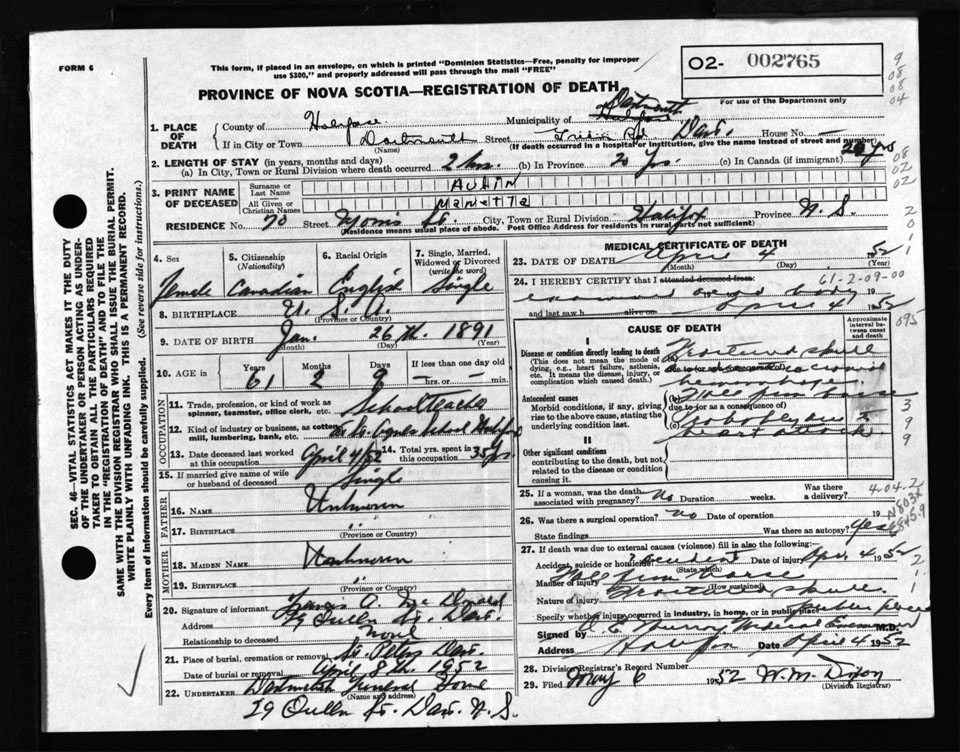 FORM 6
This form, if placed in an envelope, on which is printed "Dominion Statistics—Free, penalty for improper
use $300," and properly addressed will pass through the mail "FREE"
O2- 002765
For use of the Department only
PROVINCE OF NOVA SCOTIA—REGISTRATION OF DEATH
1. PLACE OF DEATH
County of Halifax Municipality of Halifax Dartmouth
If in City or Town Dartmouth Street Rd Dart. House No. —
(Name) (If death occurred in a hospital or institution, give the name instead of street and number)
2. LENGTH OF STAY (in years, months and days)
(a) In City, Town or Rural Division where death occurred 2 hrs. (b) In Province 20 yrs. (c) In Canada (if immigrant) 20 yrs
3. PRINT NAME OF DECEASED
Surname or Last Name AUHIN
All Given or Christian Names Marietta
RESIDENCE No. 70 Street Morris St. City, Town or Rural Division Halifax Province N.S.
(Residence means usual place of abode. Post Office Address for residents in rural parts not sufficient)
4. Sex Female
5. Citizenship (Nationality) Canadian
6. Racial Origin English
7. Single, Married, Widowed or Divorced (write the word) Single
8. BIRTHPLACE U.S.A.
(Province or Country)
9. DATE OF BIRTH Jan. 26th. 1891
(Month) (Day) (Year)
10. AGE in Years 61 Months 2 Days 9 If less than one day old — hrs. or — min.
OCCUPATION
11. Trade, profession, or kind of work as spinner, teamster, office clerk, etc. Schoolteacher
12. Kind of industry or business, as cotton mill, lumbering, bank, etc. St. Agnes School Halifax
13. Date deceased last worked at this occupation April 4/52 14. Total yrs. spent in this occupation 35 yrs
15. If married give name of wife or husband of deceased Single
FATHER
16. NAME Unknown
17. BIRTHPLACE "
(Province or Country)
MOTHER
18. MAIDEN NAME Unknown
19. BIRTHPLACE "
(Province or Country)
20. Signature of informant Francis A. McDonald
Address 29 Queen St. Dart.
Relationship to deceased None
21. Place of burial, cremation or removal St. Peters Dart.
Date of burial or removal April 8th. 1952
22. UNDERTAKER Dartmouth Funeral Home
(Name and address)
29 Queen St. Dart. N.S.
MEDICAL CERTIFICATE OF DEATH
23. DATE OF DEATH April 4 1952
(Month) (Day) (Year)
24. I HEREBY CERTIFY that I attended deceased from: 61-2-09-00
examined dead body
and last saw h alive on April 4 1952
CAUSE OF DEATH
Approximate interval between onset and death
I
Disease or condition directly leading to death
(This does not mean the mode of dying, e.g., heart failure, asthenia, etc. It means the disease, injury, or complication which caused death.)
(a) Fractured skull
due to (or as a consequence of)
hemorrhage.
Antecedent causes
Morbid conditions, if any, giving rise to the above cause, stating the underlying condition last.
(b) Fell from horse
due to (or as a consequence of)
(c) Probably due to
heart attack
II
Other significant conditions
contributing to the death, but not related to the disease or condition causing it.
25. If a woman, was the death associated with pregnancy? No Duration weeks. Was there a delivery?
26. Was there a surgical operation? no Date of operation 19
State findings Was there an autopsy? Yes
27. If death was due to external causes (violence) fill in also the following:
Accident, suicide or homicide? accident Date of injury Apr. 4 1952
(State which)
Manner of injury Fell from horse
(How sustained)
Nature of injury Fractured skull
Specify whether injury occurred in industry, in home, or in public place Public place
Signed by Medical Examiner M.D.
Address Halifax Date April 4 1952
28. Division Registrar's Record Number
29. Filed May 6 1952 W.M. Dixon
(Division Registrar)
SEC. 46—VITAL STATISTICS ACT MAKES IT THE DUTY
OF THE UNDERTAKER OR PERSON ACTING AS UNDER-
TAKER TO OBTAIN ALL THE PARTICULARS REQUIRED
IN THE "REGISTRATION OF DEATH" AND TO FILE THE
SAME WITH THE DIVISION REGISTRAR WHO SHALL ISSUE THE BURIAL PERMIT.
WRITE PLAINLY WITH UNFADING INK. THIS IS A PERMANENT RECORD.
Every item of information should be carefully supplied. (See reverse side for instructions.)
9
08
08
04
08
02
02
2
0
1
1
695
3
9
9
4-04-2
N803X
E8459
2
1
1